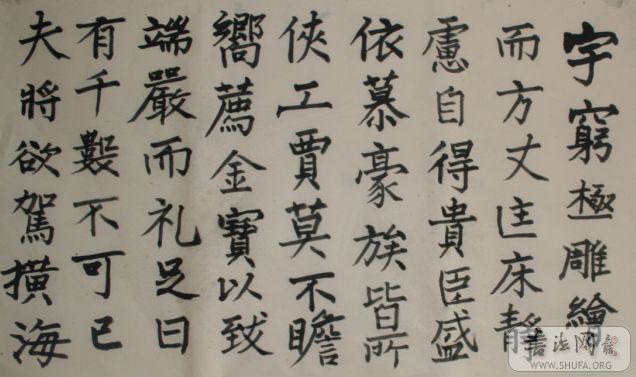 宇窮極雕繪
而方丈匡床靜
慮自得貴臣盛
依慕豪族皆所
俠工賈莫不瞻
嚮薦金寶以致
端嚴而礼足日
有千數不可已
夫將欲駕橫海
書法网
WWW.SHUFA.ORG